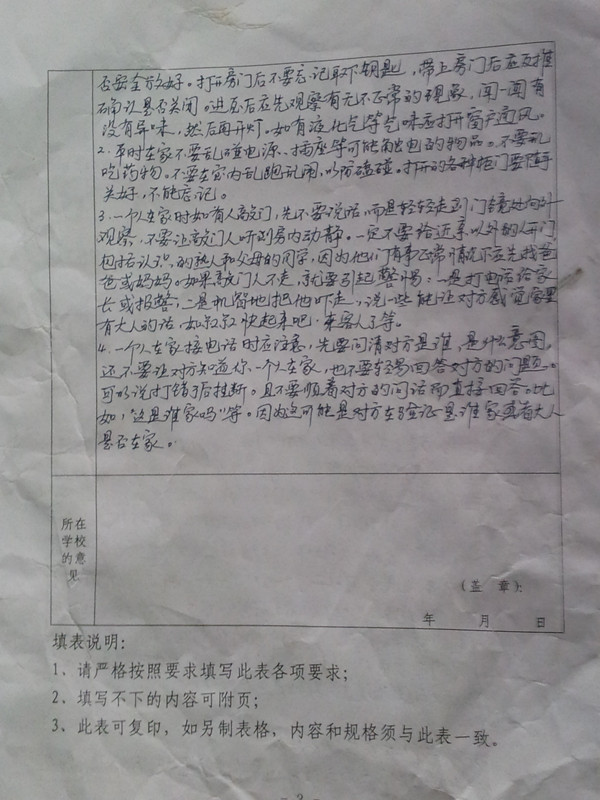 否安全放好。打开房门后不要忘记取下钥匙，带上房门后应及推
确认是否关闭。进屋后应先观察有无不正常的现象，闻一闻有
没有异味，然后再开灯。如有液化气等气味应打开窗户通风。
2.平时在家不要乱碰电源、插座等可能触电的物品。不要乱
吃药物。不要在家内乱跑乱闹，以防磕碰。打开的各种柜门要随手
关好，不能忘记。
3.一个人在家时如有人敲门，先不要说话，而是轻轻走到门镜处向外
观察，不要让敲门人听到房内动静。一定不要给近亲以外的人开门
包括认识的熟人和父母的同学，因为他们有事正常情况下应先找爸
爸或妈妈。如果敲门人不走，就要引起警惕：一是打电话给家
长或报警；二是机智地把他吓走，说一些能让对方感觉家里
有大人的话，如叔叔快起来吧，来客人了等。
4.一个人在家接电话时应注意，先要问清对方是谁，是什么意图，
还不要让对方知道你一个人在家，也不要轻易回答对方的问题。
可以说打错了后挂断。且不要顺着对方的问话而直接回答。比
如，“这是谁家吗”等。因为这可能是对方在验证是谁家或者大人
是否在家。
所在
学校
的意
见
（盖 章）：
年 月 日
填表说明：
1、请严格按照要求填写此表各项要求；
2、填写不下的内容可附页；
3、此表可复印，如另制表格，内容和规格须与此表一致。
- 2 -